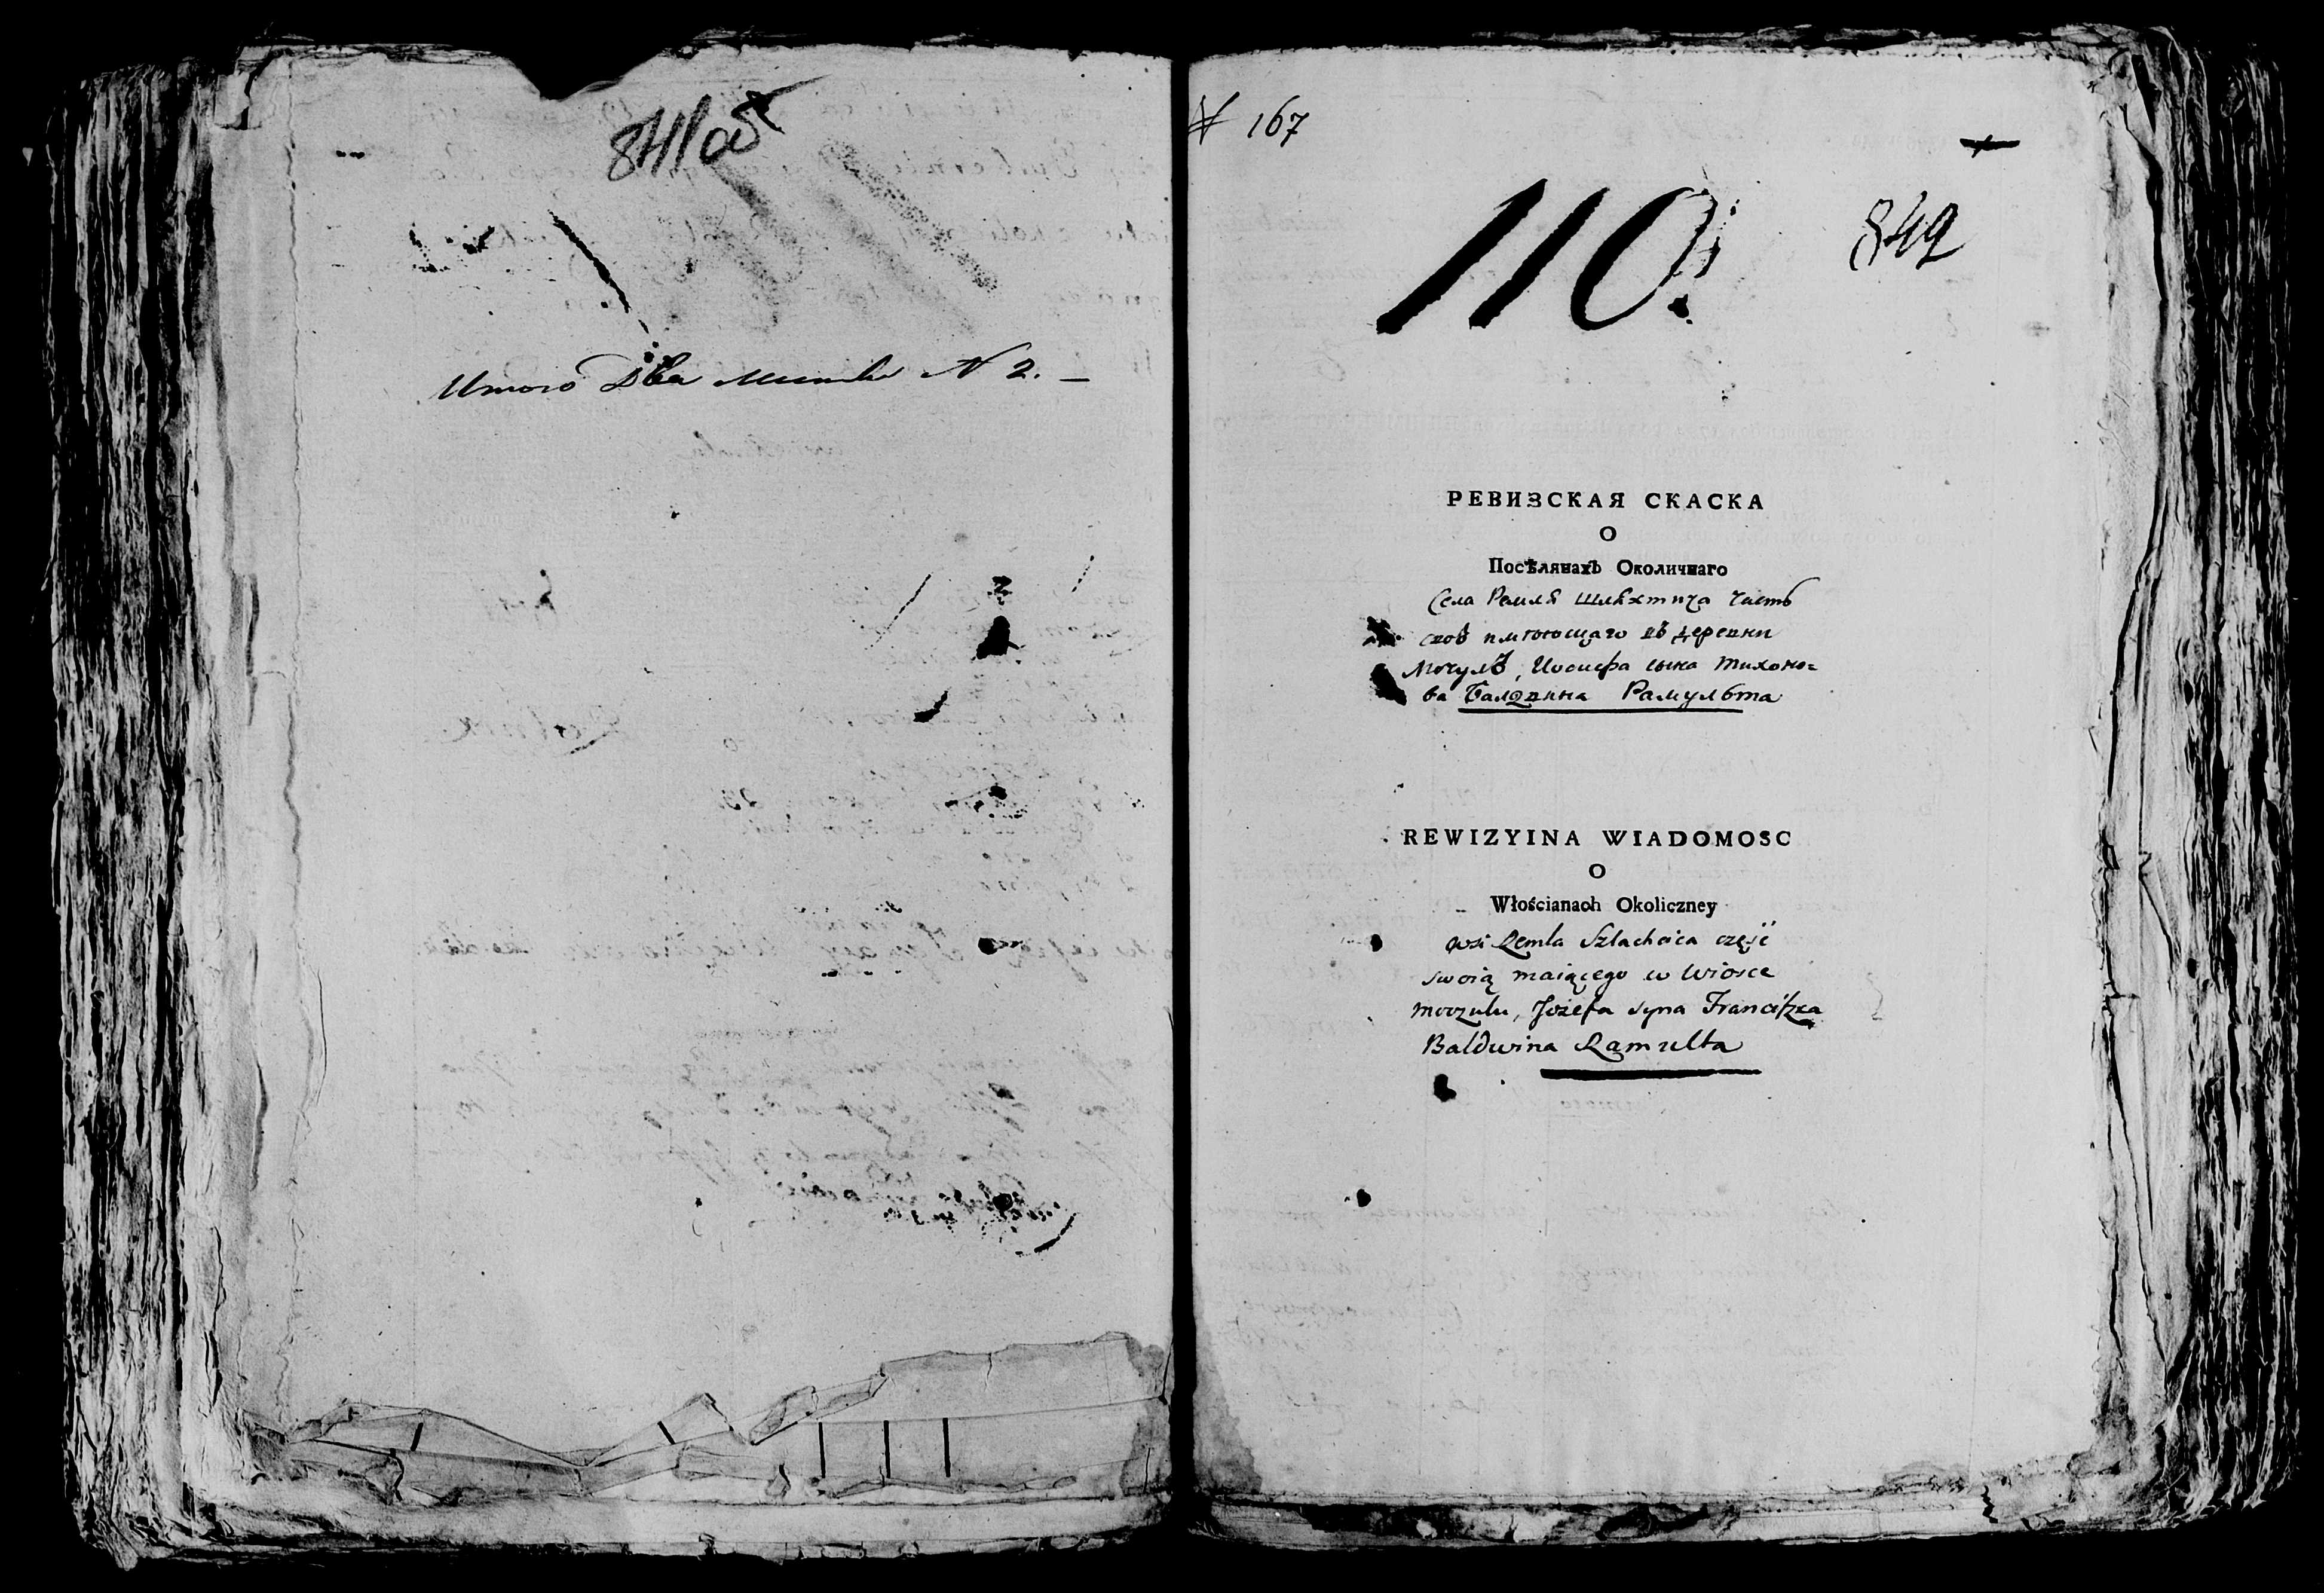 841 об
Итого Два Листа N 2. —
№ 167
110.
842
РЕВИЗСКАЯ СКАСКА
О
Посѣлянахъ Околичнаго
Села Ремля Шляхтича Часть
своѣ имѣющаго въ деревни
Мочулѣ, Иосифа сына
Балдвина Рамульта
REWIZYINA WIADOMOSC
O
Włościanach Okoliczney
wsi Remla Szlachcica część
swoią maiącego w Wiosce
Moczulu, Jozefa syna Franciszka
Baldwina Ramulta